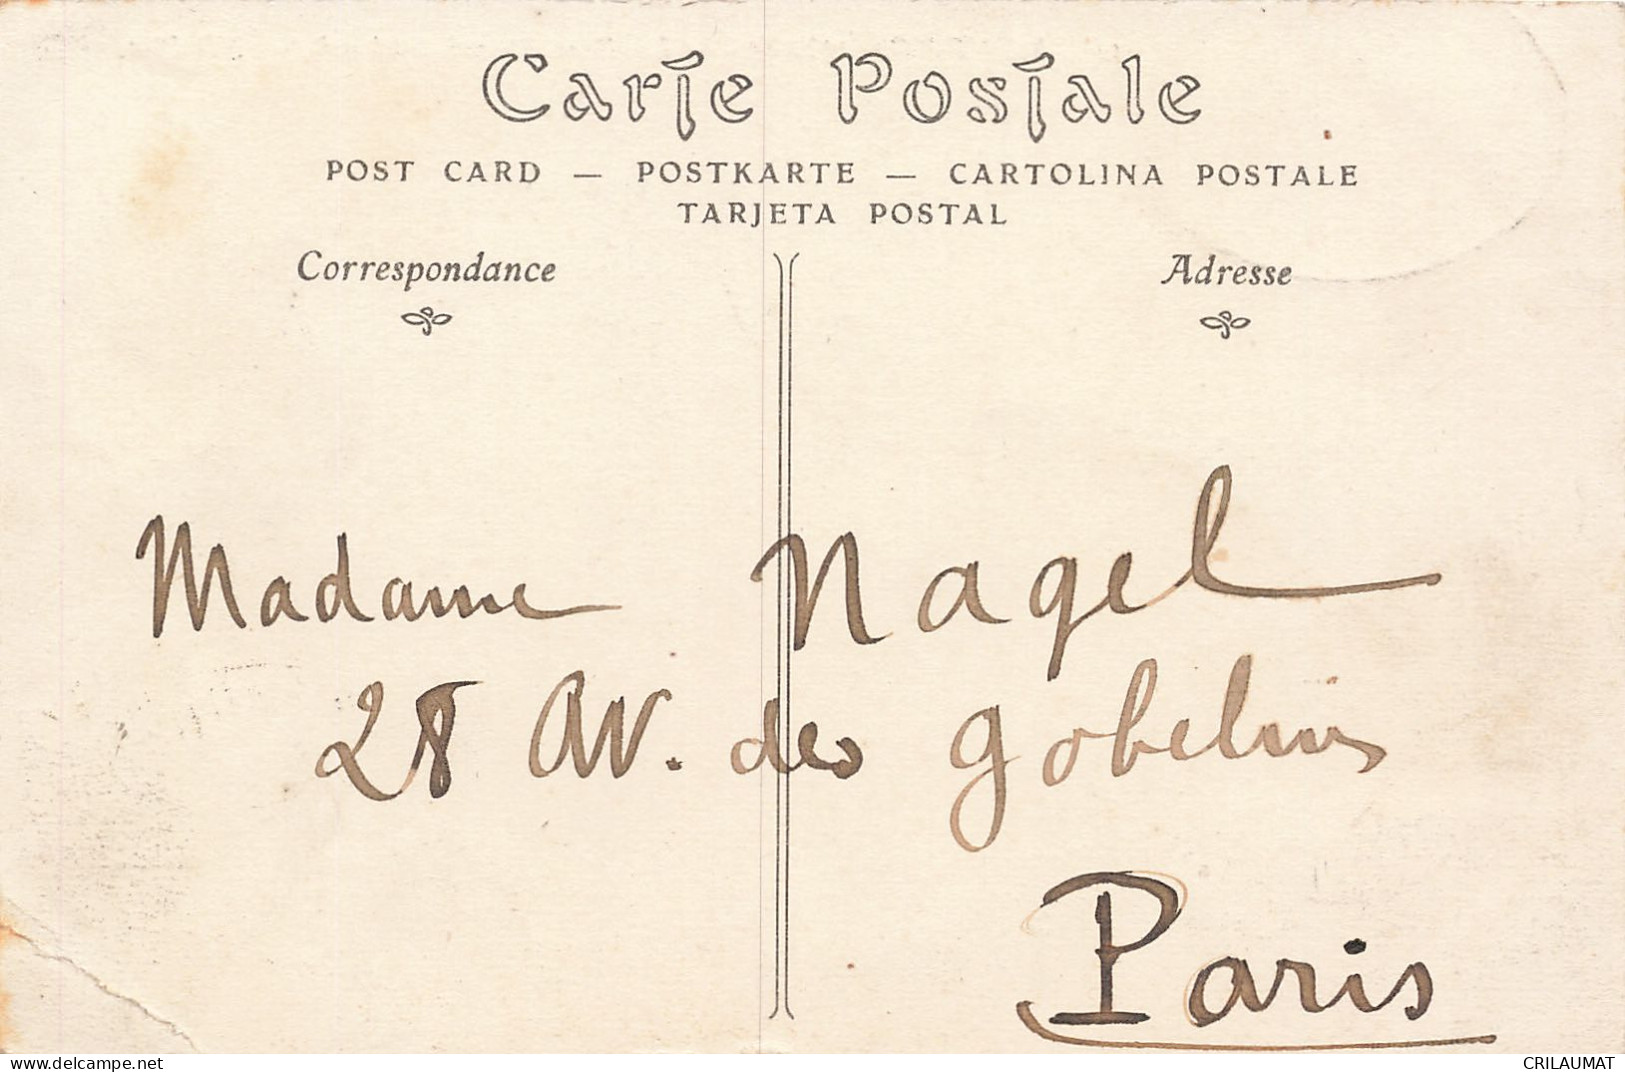 Carte Postale
POST CARD — POSTKARTE — CARTOLINA POSTALE
TARJETA POSTAL
Correspondance
Adresse
Madame Nagel
28 Av. des gobelins
Paris
delcampe.net
CRILAUMAT